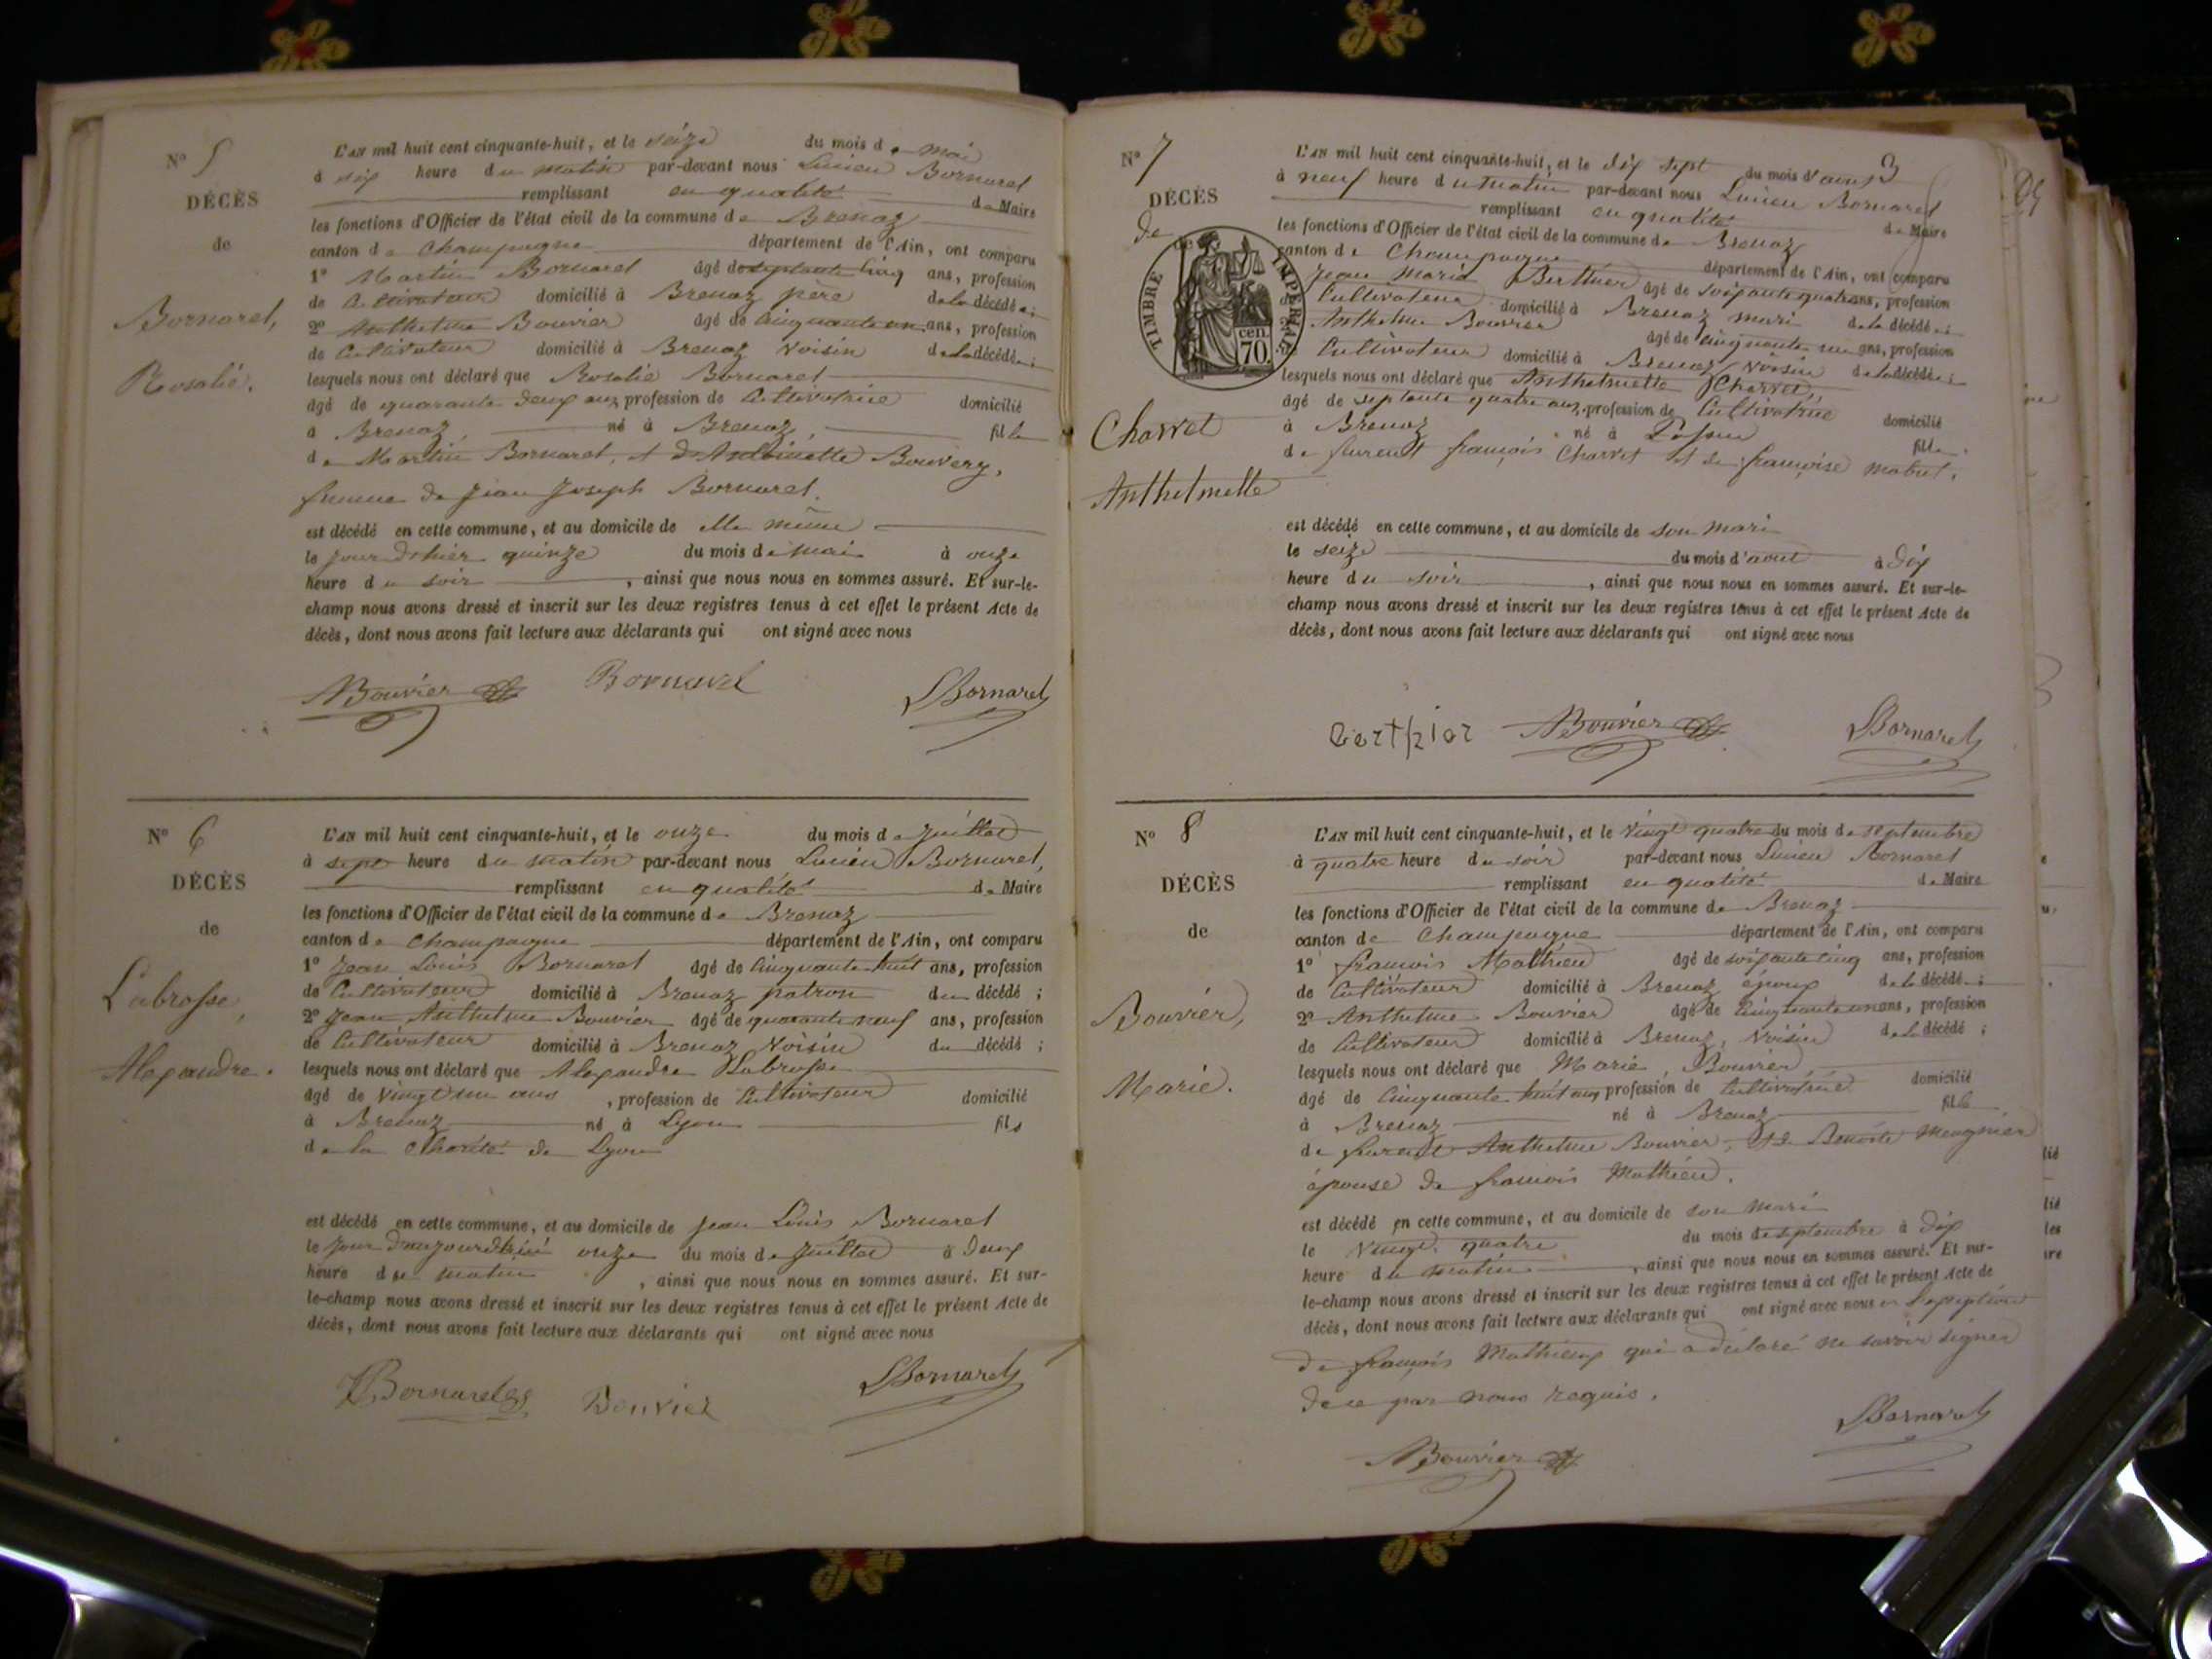 N° 5
DÉCÈS
de
Bornarel,
Rosalie.
L'AN mil huit cent cinquante-huit, et le seize du mois de mai
à six heure du matin par-devant nous Lucien Bornarel
remplissant en qualité de Maire
les fonctions d'Officier de l'état civil de la commune de Brenaz
canton de Champagne département de l'Ain, ont comparu
1° Martin Bornarel âgé de septante cinq ans, profession
de Cultivateur domicilié à Brenaz père de la décédée;
2° Anthelme Bouvier âgé de cinquante un ans, profession
de Cultivateur domicilié à Brenaz voisin de la décédée;
lesquels nous ont déclaré que Rosalie Bornarel
âgé de quarante deux ans, profession de Cultivatrice domicilié
à Brenaz, né à Brenaz, fille
de Martin Bornarel, et d'Antoinette Bouvery,
femme de Jean Joseph Bornarel.
est décédé en cette commune, et au domicile de elle même
le jour d'hier quinze du mois de mai à onze
heure du soir, ainsi que nous nous en sommes assuré. Et sur-le-
champ nous avons dressé et inscrit sur les deux registres tenus à cet effet le présent Acte de
décès, dont nous avons fait lecture aux déclarants qui ont signé avec nous
ABouvier Bornarel LBornarel
N° 6
DÉCÈS
de
Labrosse,
Alexandre.
L'AN mil huit cent cinquante-huit, et le onze du mois de Juillet
à sept heure du matin par-devant nous Lucien Bornarel,
remplissant en qualité de Maire
les fonctions d'Officier de l'état civil de la commune de Brenaz
canton de Champagne département de l'Ain, ont comparu
1° Jean Louis Bornarel âgé de cinquante huit ans, profession
de Cultivateur domicilié à Brenaz patron du décédé;
2° Jean Anthelme Bouvier âgé de quarante neuf ans, profession
de Cultivateur domicilié à Brenaz voisin du décédé;
lesquels nous ont déclaré que Alexandre Labrosse
âgé de vingt un ans, profession de Cultivateur domicilié
à Brenaz né à Lyon fils
de la Charité de Lyon
est décédé en cette commune, et au domicile de Jean Louis Bornarel
le jour d'aujourd'hui onze du mois de Juillet à deux
heure du matin, ainsi que nous nous en sommes assuré. Et sur-
le-champ nous avons dressé et inscrit sur les deux registres tenus à cet effet le présent Acte de
décès, dont nous avons fait lecture aux déclarants qui ont signé avec nous
Bornarel Bouvier LBornarel
N° 7
DÉCÈS
de
de
TIMBRE IMPÉRIAL
cen
70
Charvet
Anthelmette
3
L'AN mil huit cent cinquante-huit, et le dix sept du mois d'aout
à neuf heure du matin par-devant nous Lucien Bornarel
remplissant en qualité de Maire
les fonctions d'Officier de l'état civil de la commune de Brenaz
canton de Champagne département de l'Ain, ont comparu
Jean Marie Berthier âgé de soixante quatre ans, profession
Cultivateur domicilié à Brenaz mari de la décédée;
Anthelme Bouvier âgé de cinquante un ans, profession
Cultivateur domicilié à Brenaz voisin de la décédée;
lesquels nous ont déclaré que Anthelmette Charvet,
âgé de septante quatre ans, profession de Cultivatrice domicilié
à Brenaz né à fille
de François Charvet et de Françoise Mabut.
est décédé en cette commune, et au domicile de son mari
le seize du mois d'aout à dix
heure du soir, ainsi que nous nous en sommes assuré. Et sur-le-
champ nous avons dressé et inscrit sur les deux registres tenus à cet effet le présent Acte de
décès, dont nous avons fait lecture aux déclarants qui ont signé avec nous
ABouvier LBornarel
N° 8
DÉCÈS
de
Bouvier,
Marie.
L'AN mil huit cent cinquante-huit, et le vingt quatre du mois de septembre
à quatre heure du soir par-devant nous Lucien Bornarel
remplissant en qualité de Maire
les fonctions d'Officier de l'état civil de la commune de Brenaz
canton de Champagne département de l'Ain, ont comparu
1° François Mathieu âgé de soixante cinq ans, profession
de Cultivateur domicilié à Brenaz époux de la décédée;
2° Anthelme Bouvier âgé de cinquante un ans, profession
de Cultivateur domicilié à Brenaz, voisin de la décédé;
lesquels nous ont déclaré que Marie Bouvier
âgé de cinquante huit ans, profession de Cultivatrice domicilié
à Brenaz né à Brenaz fille
de Anthelme Bouvier, et de Benoite Meugnier
épouse de François Mathieu.
est décédé en cette commune, et au domicile de son mari
le vingt quatre du mois de septembre à dix
heure du matin, ainsi que nous nous en sommes assuré. Et sur-
le-champ nous avons dressé et inscrit sur les deux registres tenus à cet effet le présent Acte de
décès, dont nous avons fait lecture aux déclarants qui ont signé avec nous à l'exception
de françois Mathieu qui a déclaré ne savoir signer
de ce par nous requis.
ABouvier LBornarel